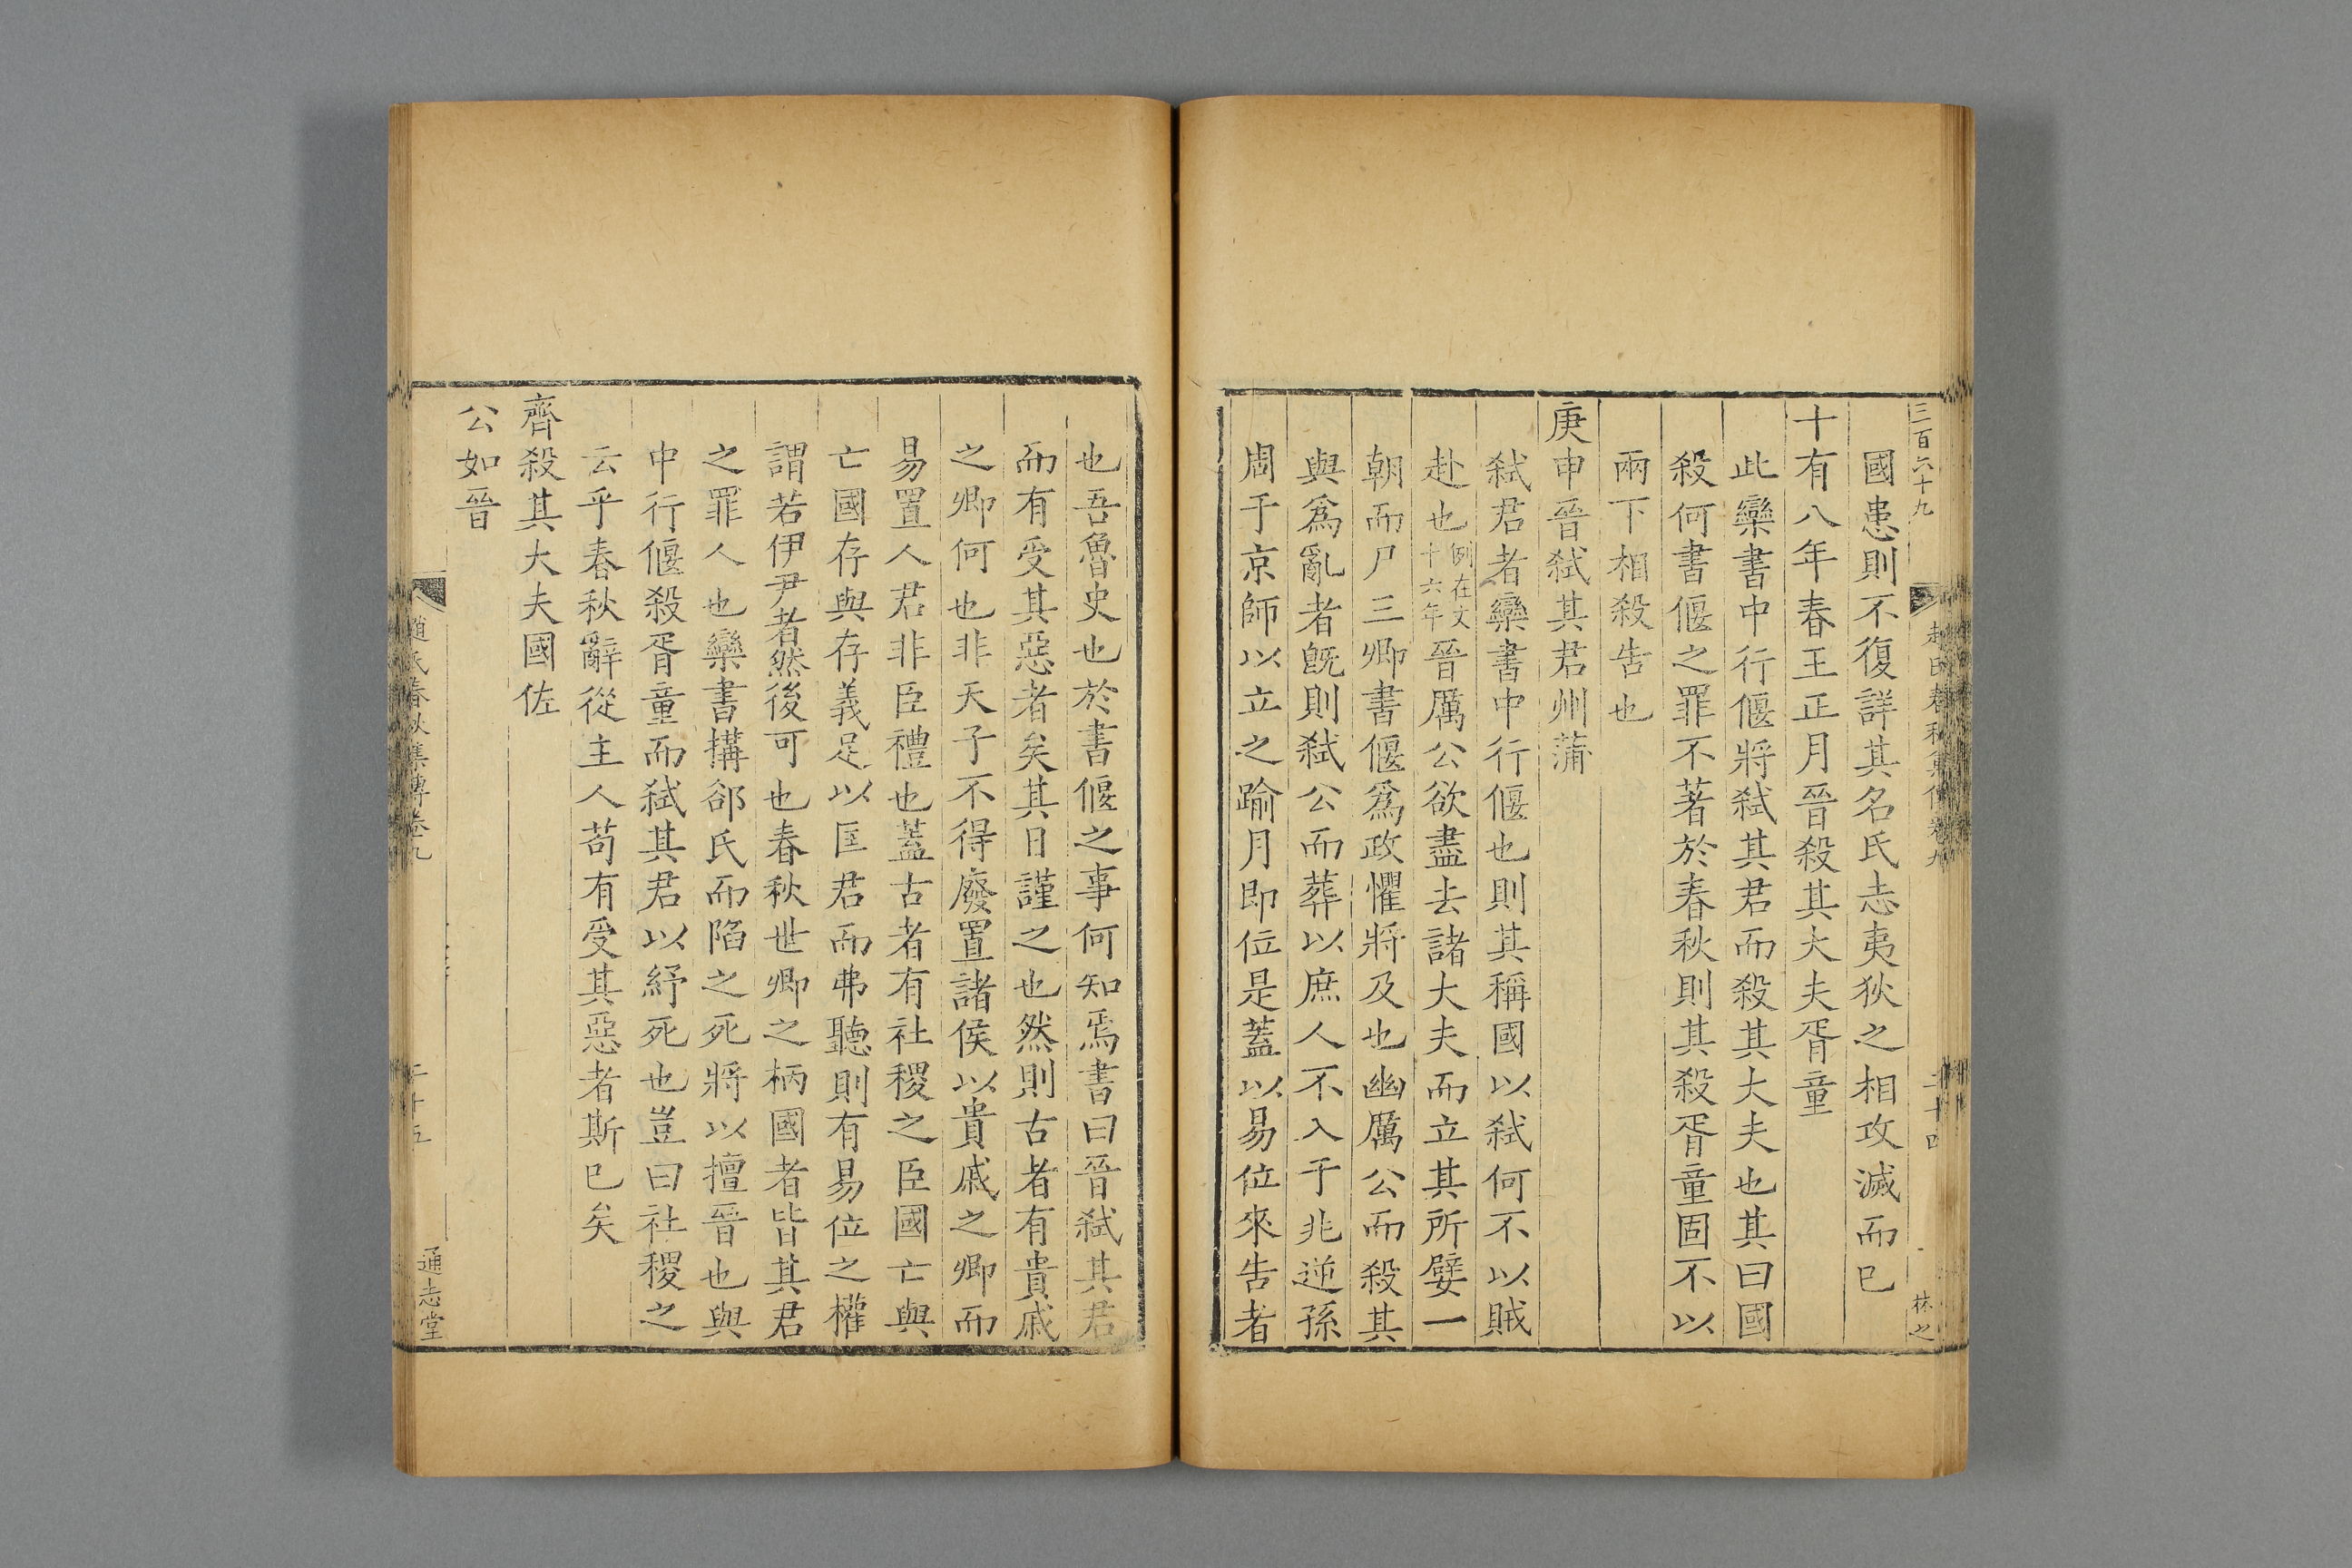 三百六十九
國患則不復詳其名氏志夷狄之相攻滅而已
十有八年春王正月晉殺其大夫胥童
此欒書中行偃將弑其君而殺其大夫也其曰國
殺何書偃之罪不著於春秋則其殺胥童固不以
兩下相殺告也
庚申晉弑其君州蒲
弑君者欒書中行偃也則其稱國以弑何不以賊
赴也例在文十六年晉厲公欲盡去諸大夫而立其所嬖一
朝而尸三卿書偃爲政懼將及也幽厲公而殺其
與爲亂者旣則弑公而葬以庶人不入于兆逆孫
周于京師以立之踰月即位是蓋以易位來告者
趙氏春秋集傳卷九
二十四
林之
也吾魯史也於書偃之事何知焉書曰晉弑其君
而有受其惡者矣其日謹之也然則古者有貴戚
之卿何也非天子不得廢置諸侯以貴戚之卿而
易置人君非臣禮也蓋古者有社稷之臣國亡與
亡國存與存義足以匡君而弗聽則有易位之權
謂若伊尹者然後可也春秋世卿之柄國者皆其君
之罪人也欒書搆郤氏而陷之死將以擅晉也與
中行偃殺胥童而弑其君以紓死也豈曰社稷之
云乎春秋辭從主人苟有受其惡者斯已矣
齊殺其大夫國佐
公如晉
趙氏春秋集傳卷九
二十五
通志堂